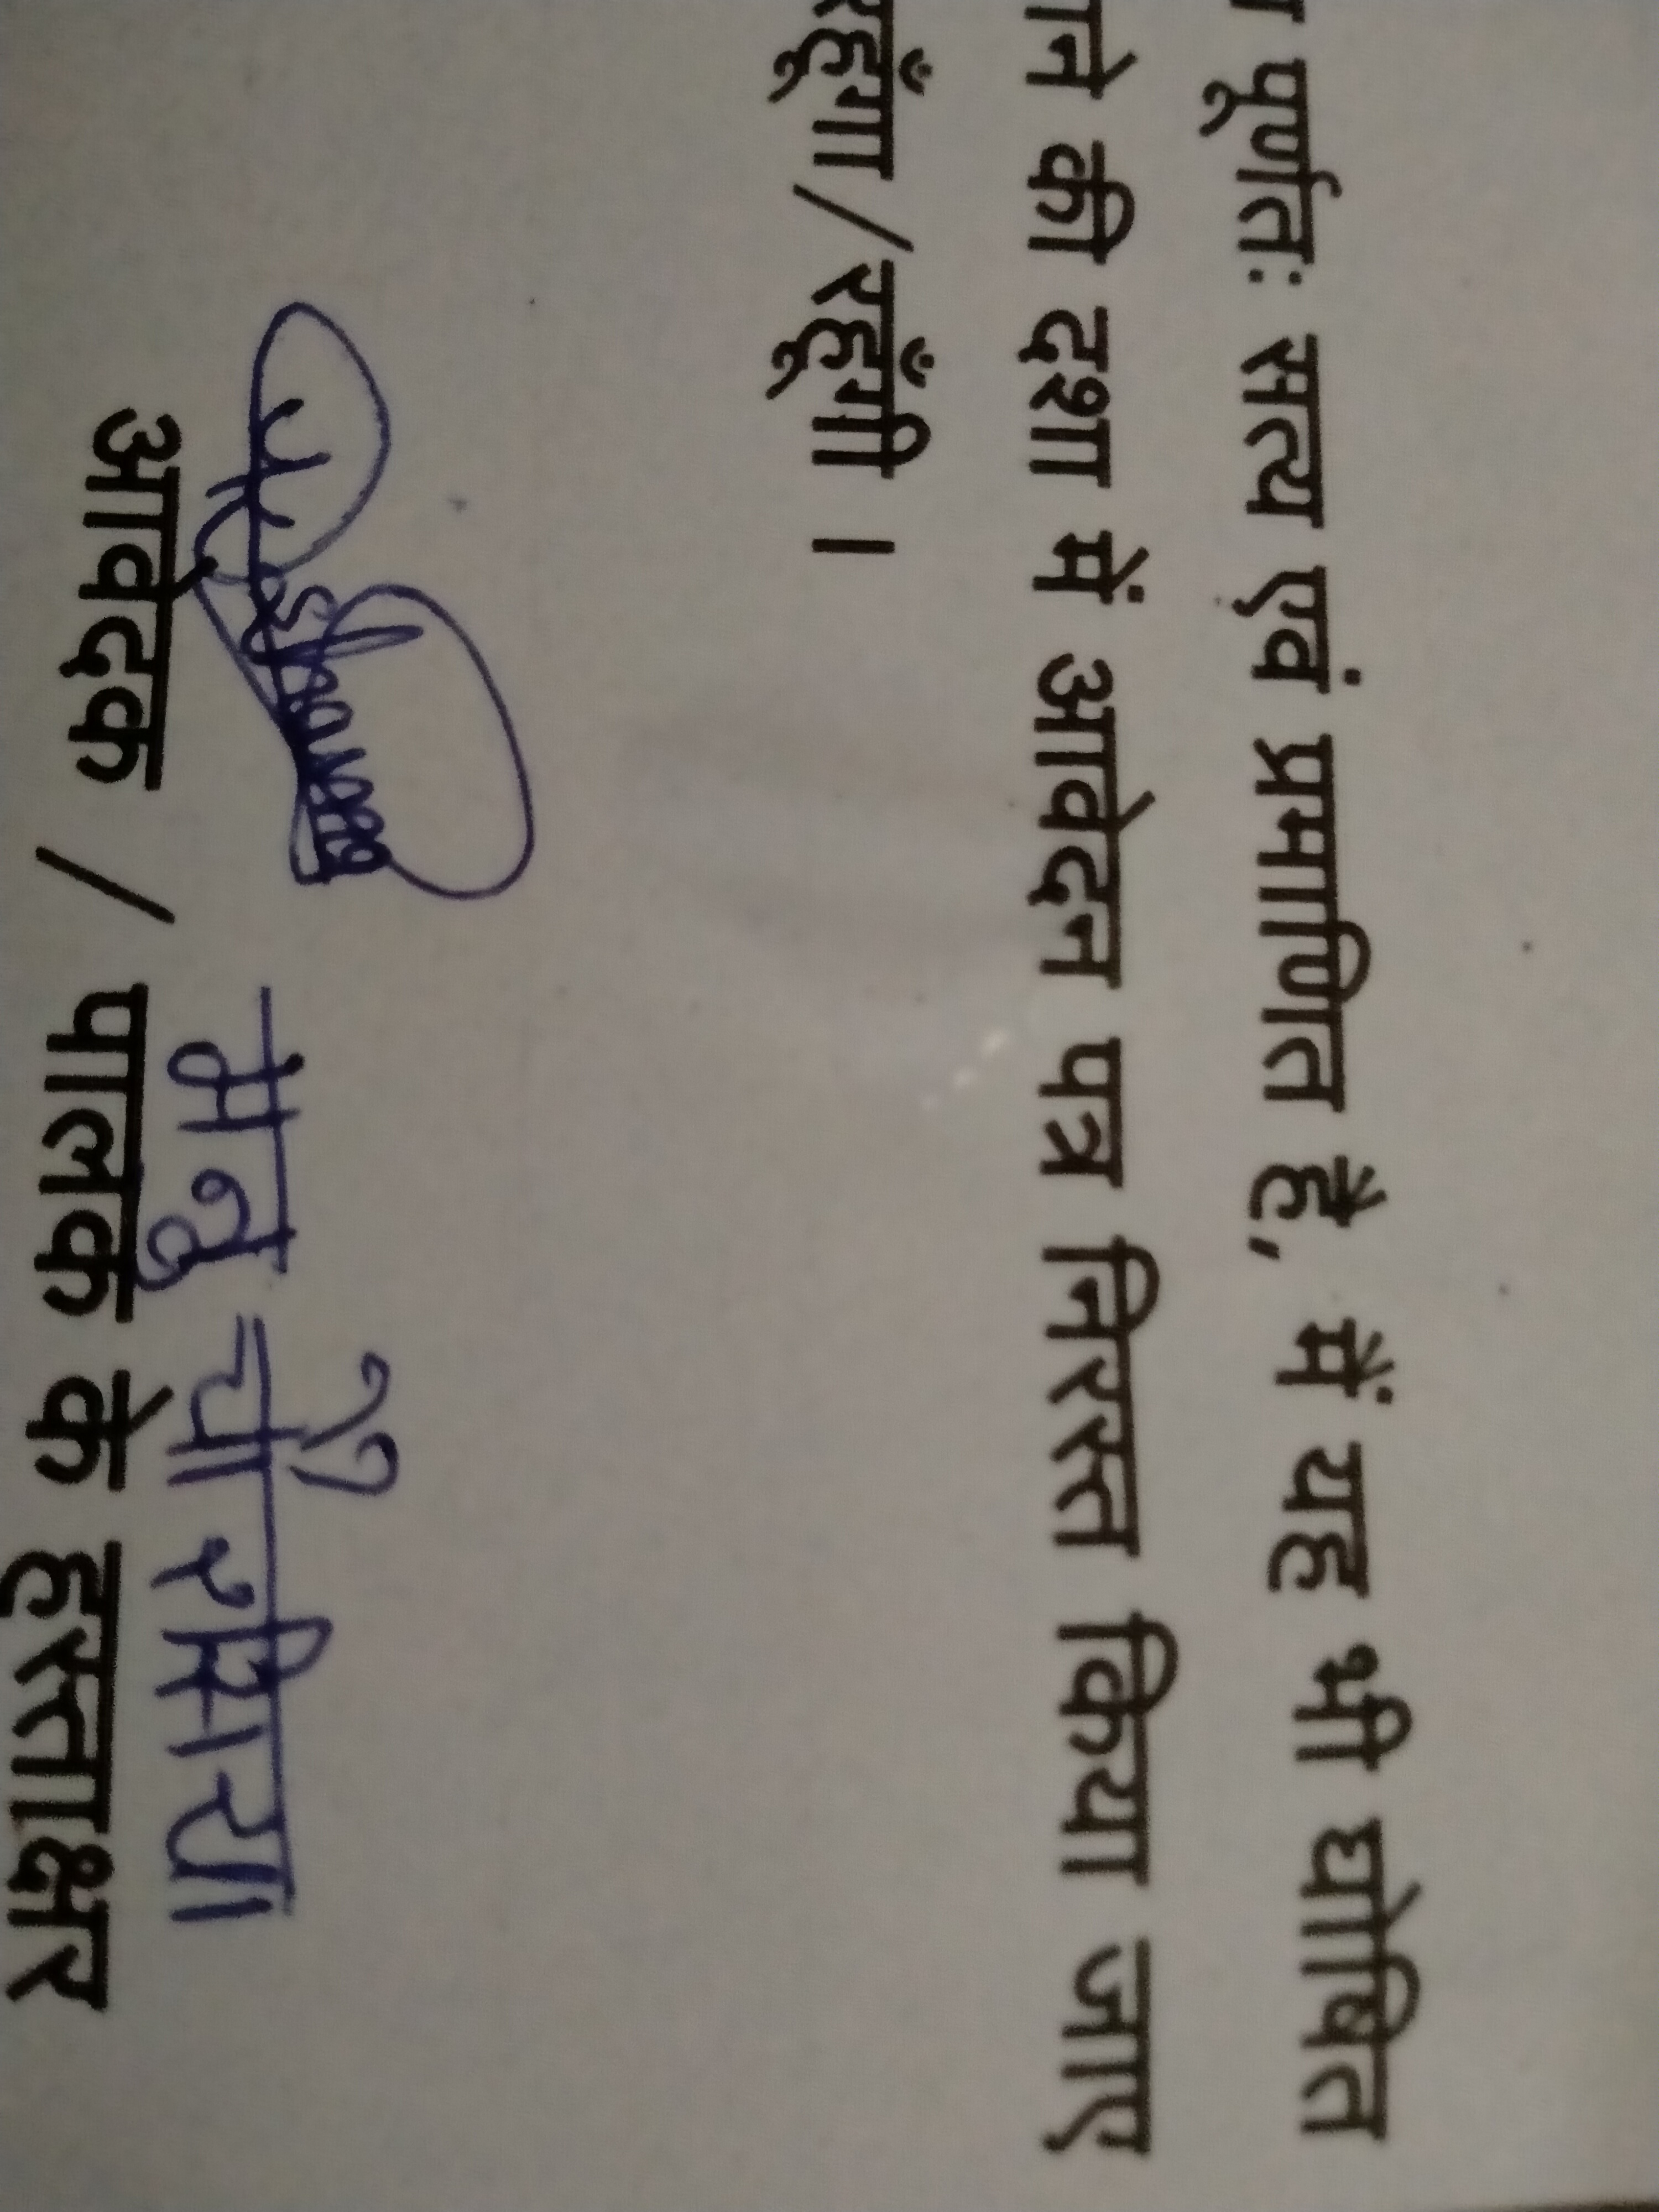 पूर्णतः सत्य एवं प्रमाणित है, मैं यह भी घोषित
ने की दशा में आवेदन पत्र निरस्त किया जाए
रहूँगा/रहूँगी ।
भानु चौरसिया
आवेदक / पालक के हस्ताक्षर